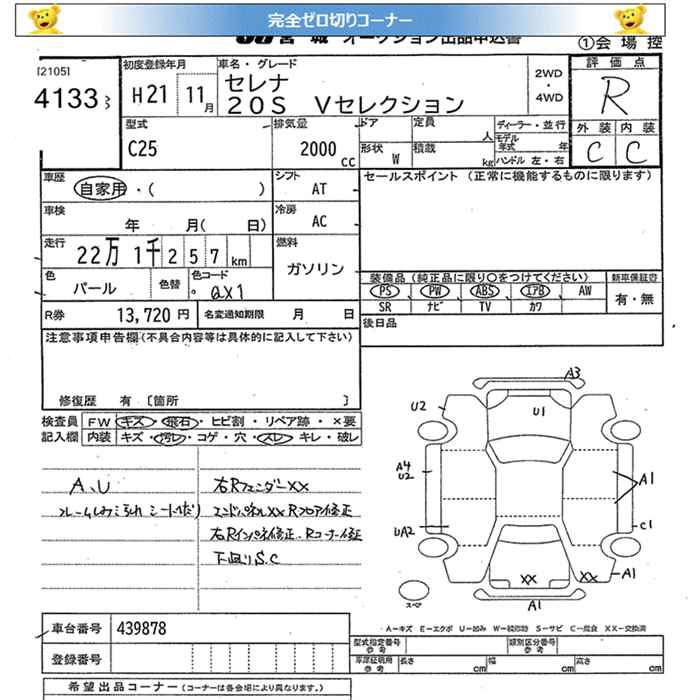 完全ゼロ切りコーナー
宮城 オークション出品申込書
①会場控
[2105]
41333
初度登録年月
H21 11月
車名・グレード
セレナ
20S Vセレクション
2WD
・
4WD
評価点
R
型式
C25
排気量
2000 cc
ドア
形状 W
定員 人
積載 kg
ディーラー・並行
モデル年式 年
ハンドル 左・右
外装 内装
C C
車歴 自家用・( )
シフト AT
セールスポイント (正常に機能するものに限ります)
車検 年 月( 日)
冷房 AC
走行 22万1千257km
燃料 ガソリン
色 パール
色替
色コード QX1
装備品 (純正品に限り○をつけてください)
新車保証書
PS PW ABS エアB AW
SR ナビ TV カワ
有・無
R券 13,720円
名変通知期限 月 日
後日品
注意事項申告欄(不具合内容等は具体的に記入して下さい)
修復歴 有 [箇所 ]
検査員 FW キズ・飛石・ヒビ割・リペア跡・×要
記入欄 内装 キズ・汚レ・コゲ・穴・スレ・キレ・破レ
A、U
右RフェンダーXX
エンドパネルXX Rフロア修正
右Rインパネ修正、Rコーナー修正
下廻りS.C
A3
U2
U1
A4
U2
A1
UA2
C1
XX XX A1
A1
スペア
A−キズ E−エクボ U−凹み W−補修跡 S−サビ C−腐食 XX−交換済
車台番号 439878
登録番号
型式指定番号 参考
類別区分番号 参考
車庫証明用 参考 長さ cm 幅 cm 高さ cm
希望出品コーナー (コーナーは各会場により異なります。)